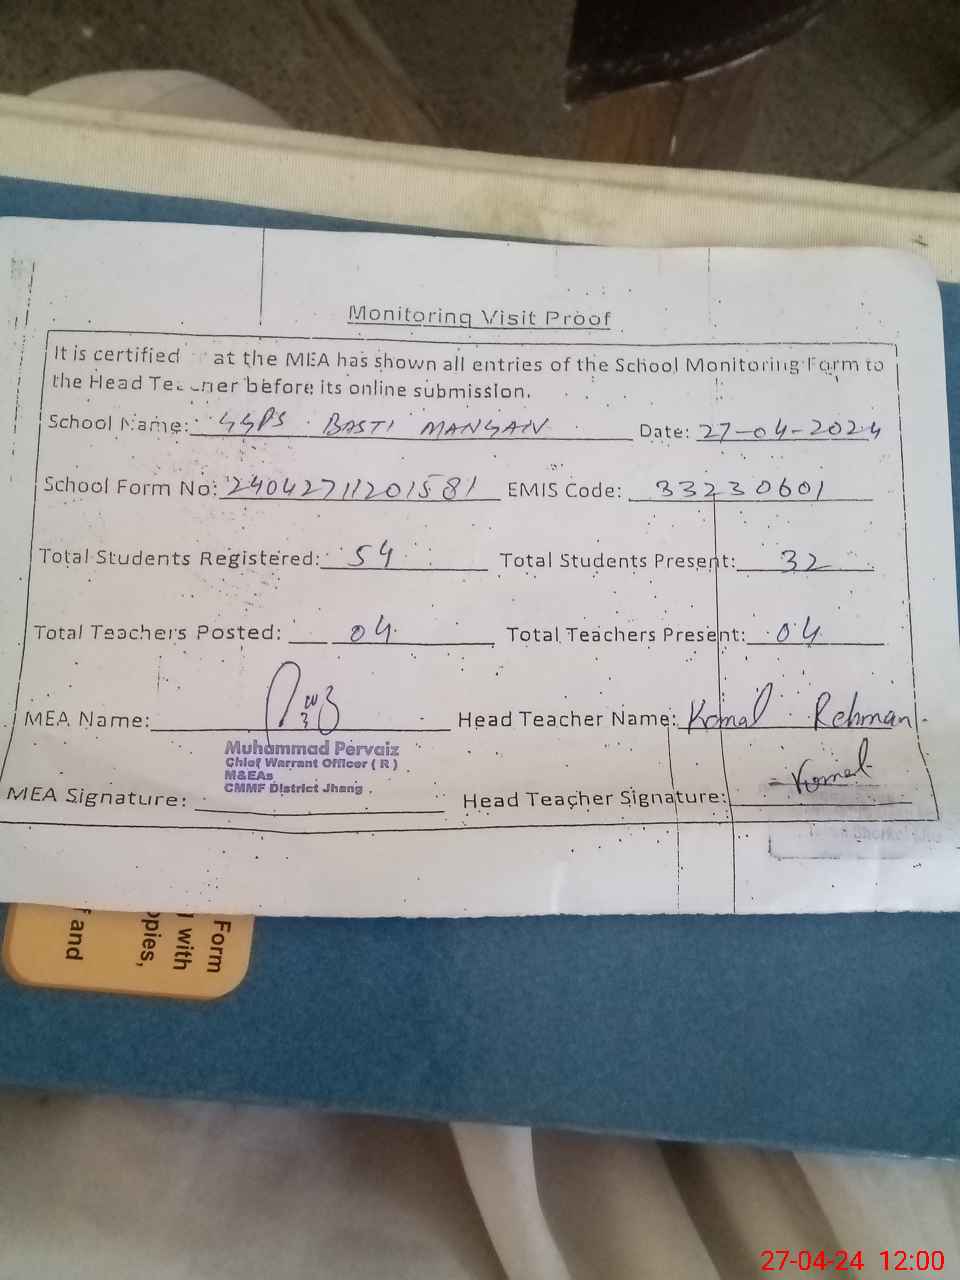 Monitoring Visit Proof
It is certified at the MEA has shown all entries of the School Monitoring Form to
the Head Teacher before its online submission.
School Name: GGPS BASTI MANGAIN Date: 27-04-2024
School Form No: 24042711201581 EMIS Code: 33230601
Total Students Registered: 54 Total Students Present: 32
Total Teachers Posted: 04 Total Teachers Present: 04
MEA Name: Head Teacher Name: Komal Rehman
Muhammad Pervaiz
Chief Warrant Officer ( R )
M&EAs
CMMF District Jhang
MEA Signature: Head Teacher Signature: Komal
Form
with
opies,
and
27-04-24 12:00